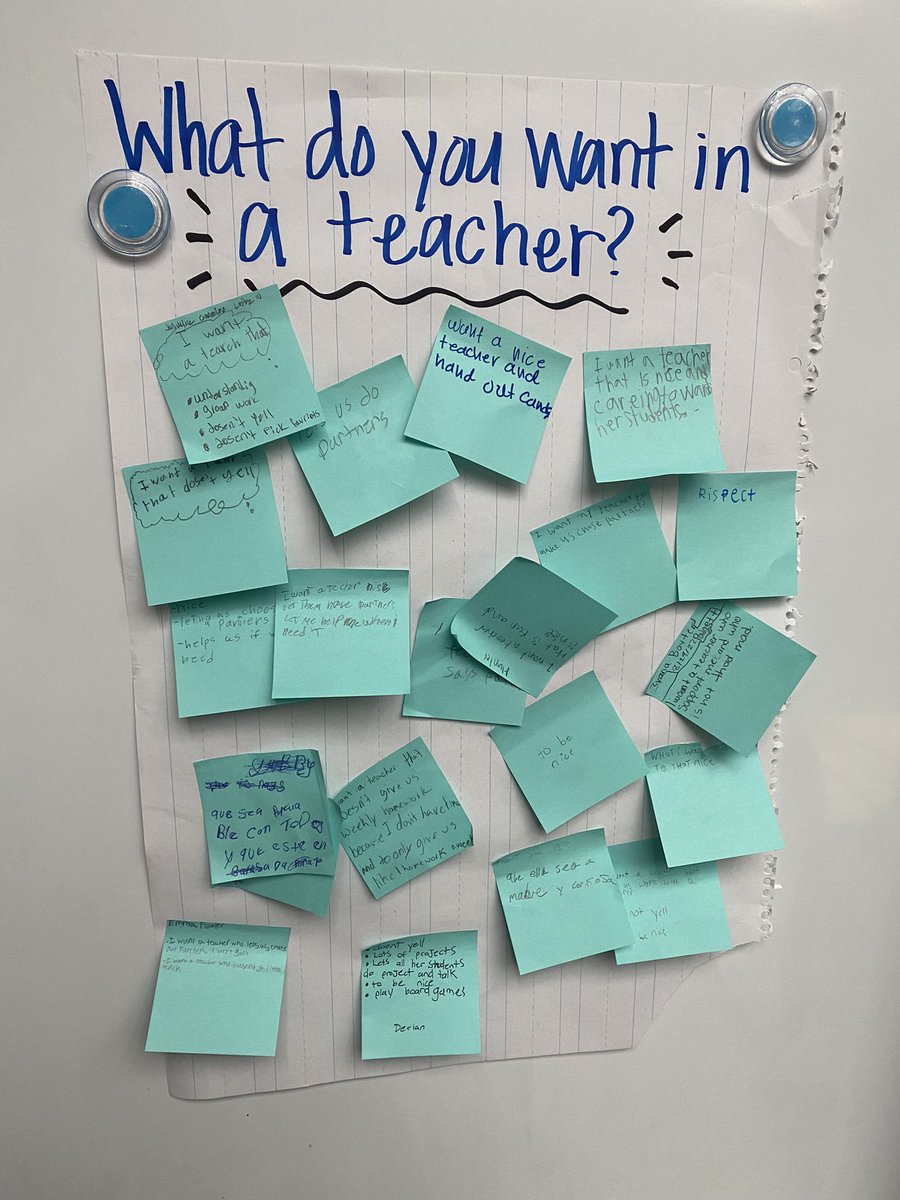 What do you want in
a teacher?
I want
a teach that
understantig
group work
doesn't yell
doesent Pick favriots
us do
partners
want a nice
teacher and
hand out candy
I want a teacher
that is nice and
careing towards
her students.
I want a
that doset yell
I want my teacher to
make us chose partners
Rispect
-nice
-leting us choos
partners
-helps us if
need
I want a techer nise
Let Them have partners
Let me help me when I
need T.
says
I want a teacher
that is fun and
is nice
12/29/22
I want a teacher who
support me and who
is not thad mad
to be
nice
WHAT I WAN
TO THAT NICE
que sea
Ble con ToDo
y que este en
want a teacher that
doesn't give us
weekly homework
because I don't have time
and to only give us
like 1 homework
que ella sea
y
not yell
be nice
Emma
-I want a teacher who lets us choose
our partners
-I want a teacher who doesent yell
much
doent yell
Lots of projects
Lets all her students
do project and talk
to be nice
play board games
Derian